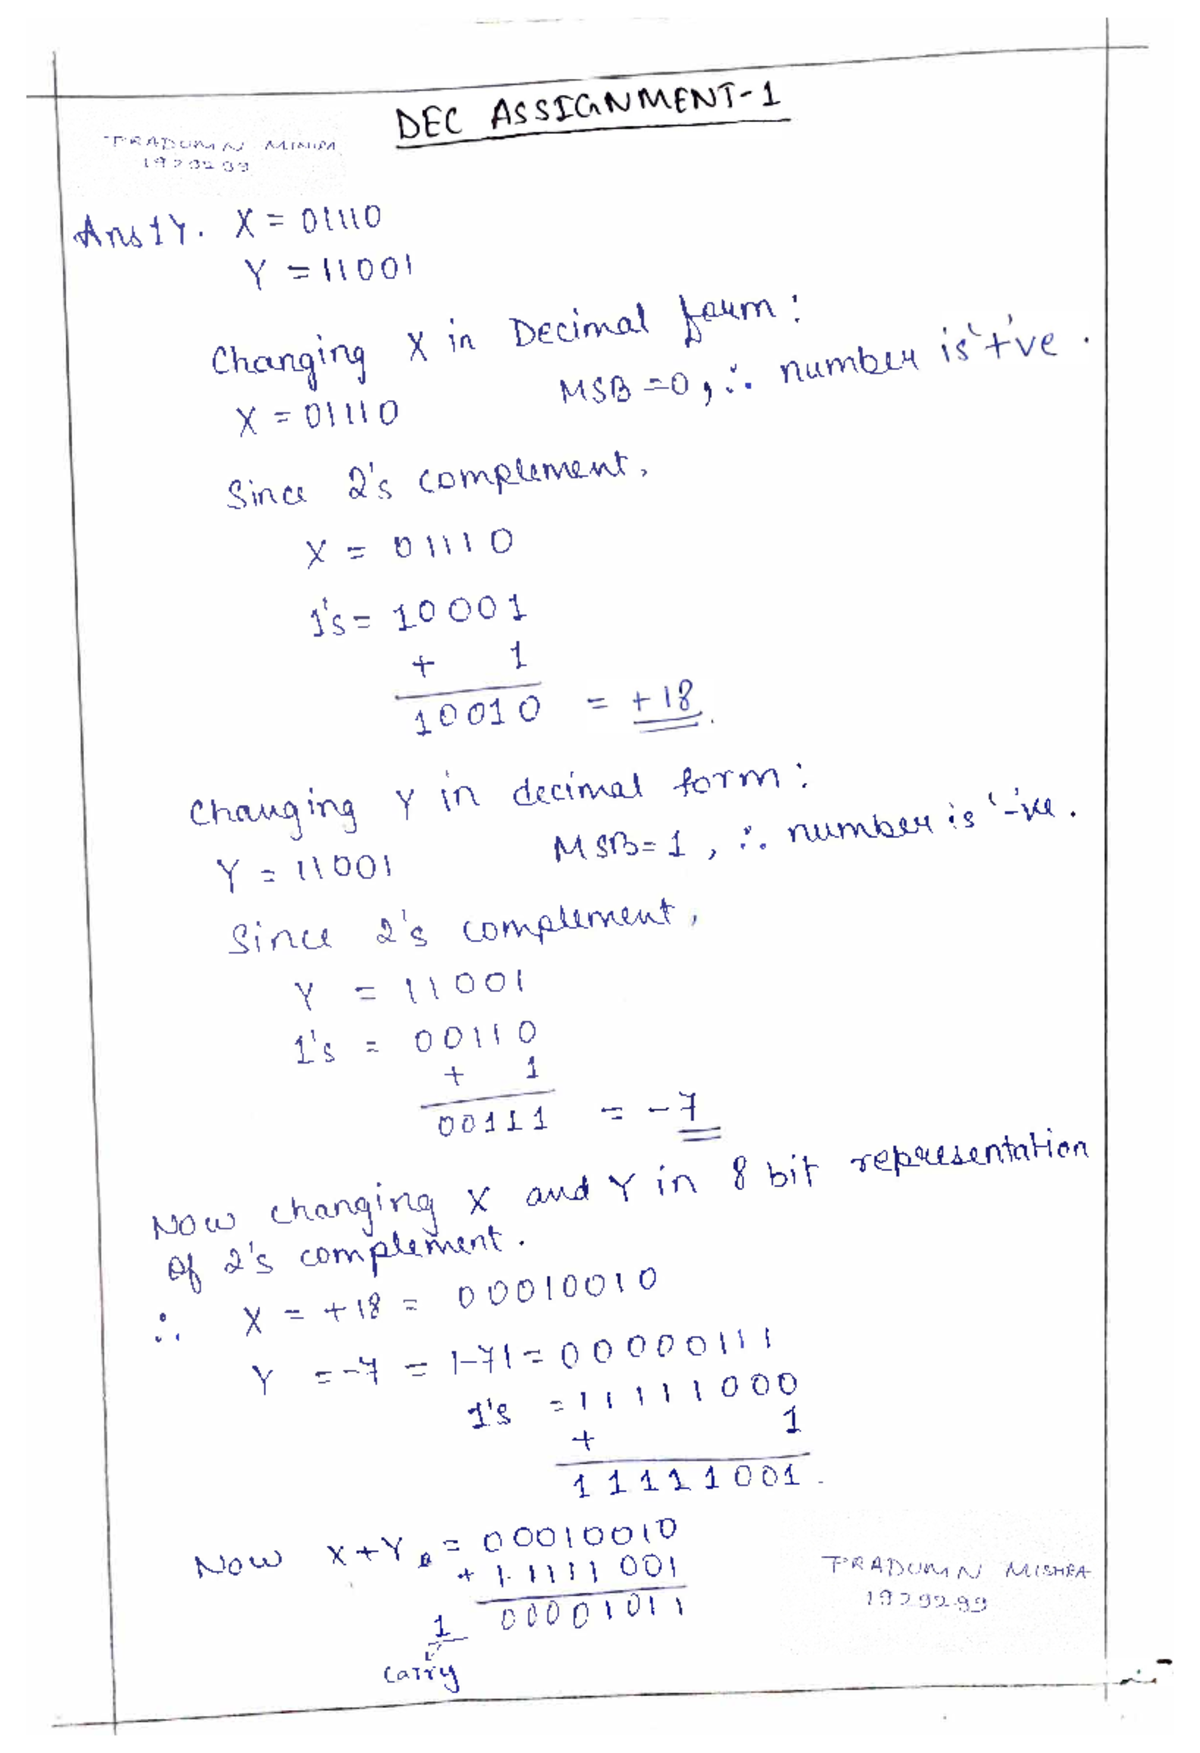 DEC ASSIGNMENT-1
PRADUMN
Ans 1Y. X = 01110
Y = 11001
Changing X in Decimal form :
X = 01110 MSB = 0, ∴ number is '+'ve.
Since 2's complement,
X = 01110
1's = 10001
+ 1
10010 = +18.
Changing Y in decimal form :
Y = 11001 MSB = 1, ∴ number is '-'ve.
Since 2's complement,
Y = 11001
1's = 00110
+ 1
00111 = -7
Now changing X and Y in 8 bit representation
of 2's complement.
∴ X = +18 = 00010010
Y = -7 = |-7| = 00000111
1's = 11111000
+ 1
11111001.
Now X+Y = 00010010
+ 11111001
1 00001011
carry
PRADUMN MISHRA
1929299